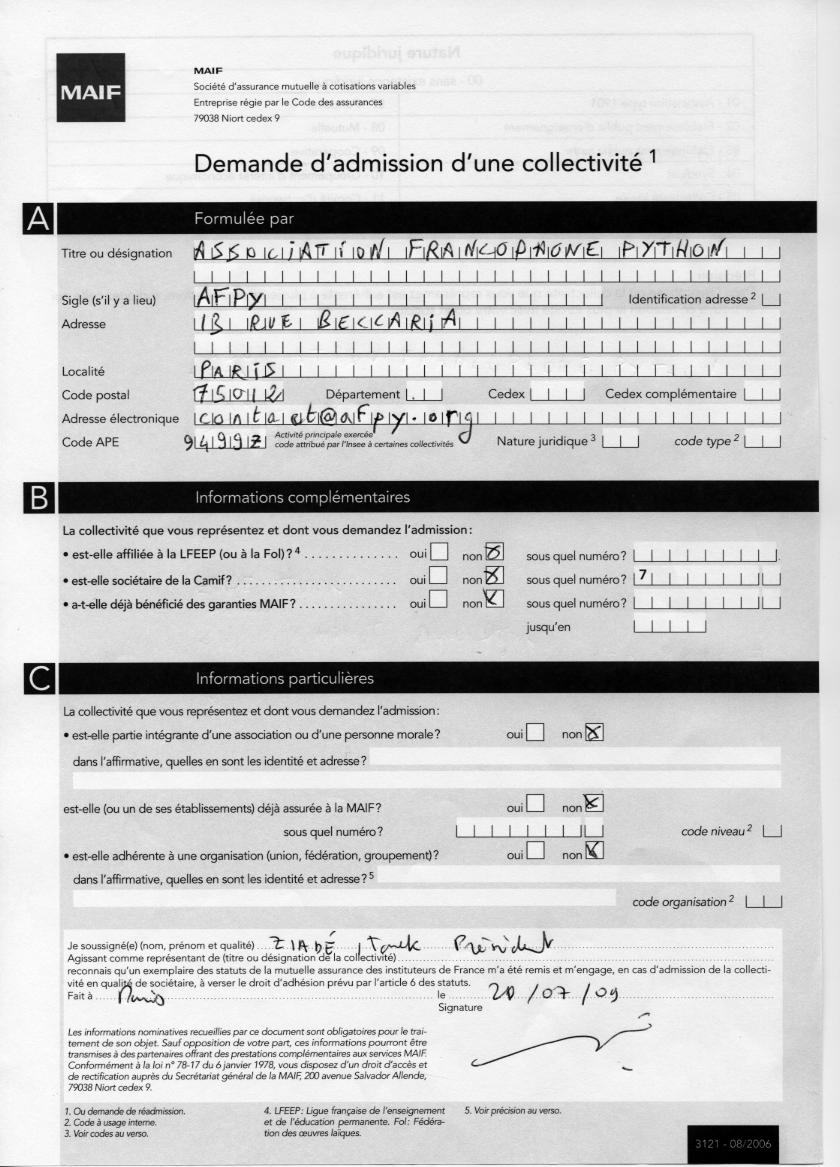 Nature juridique
MAIF
MAIF
Société d'assurance mutuelle à cotisations variables
Entreprise régie par le Code des assurances
79038 Niort cedex 9
Demande d'admission d'une collectivité 1
A Formulée par
Titre ou désignation ASSOCIATION FRANCOPHONE PYTHON
Sigle (s'il y a lieu) AFPY Identification adresse 2
Adresse 13 RUE BECCARIA
Localité PARIS
Code postal 75012 Département Cedex Cedex complémentaire
Adresse électronique contact@afpy.org
Code APE 9499Z Activité principale exercée code attribué par l'Insee à certaines collectivités Nature juridique 3 code type 2
B Informations complémentaires
La collectivité que vous représentez et dont vous demandez l'admission :
• est-elle affiliée à la LFEEP (ou à la Fol) ? 4 .............. oui non sous quel numéro ?
• est-elle sociétaire de la Camif ? ........................ oui non sous quel numéro ? 7
• a-t-elle déjà bénéficié des garanties MAIF ? ............... oui non sous quel numéro ?
jusqu'en
C Informations particulières
La collectivité que vous représentez et dont vous demandez l'admission :
• est-elle partie intégrante d'une association ou d'une personne morale ? oui non
dans l'affirmative, quelles en sont les identité et adresse ?
est-elle (ou un de ses établissements) déjà assurée à la MAIF ? oui non
sous quel numéro ? code niveau 2
• est-elle adhérente à une organisation (union, fédération, groupement) ? oui non
dans l'affirmative, quelles en sont les identité et adresse ? 5
code organisation 2
Je soussigné(e) (nom, prénom et qualité) ZIADÉ, Tarek Président
Agissant comme représentant de (titre ou désignation de la collectivité)
reconnais qu'un exemplaire des statuts de la mutuelle assurance des instituteurs de France m'a été remis et m'engage, en cas d'admission de la collecti-
vité en qualité de sociétaire, à verser le droit d'adhésion prévu par l'article 6 des statuts.
Fait à Paris le 20/07/09
Signature
Les informations nominatives recueillies par ce document sont obligatoires pour le trai-
tement de son objet. Sauf opposition de votre part, ces informations pourront être
transmises à des partenaires offrant des prestations complémentaires aux services MAIF.
Conformément à la loi n° 78-17 du 6 janvier 1978, vous disposez d'un droit d'accès et
de rectification auprès du Secrétariat général de la MAIF, 200 avenue Salvador Allende,
79038 Niort cedex 9.
1. Ou demande de réadmission.
2. Code à usage interne.
3. Voir codes au verso.
4. LFEEP : Ligue française de l'enseignement
et de l'éducation permanente. Fol : Fédéra-
tion des œuvres laïques.
5. Voir précision au verso.
3121 - 08/2006